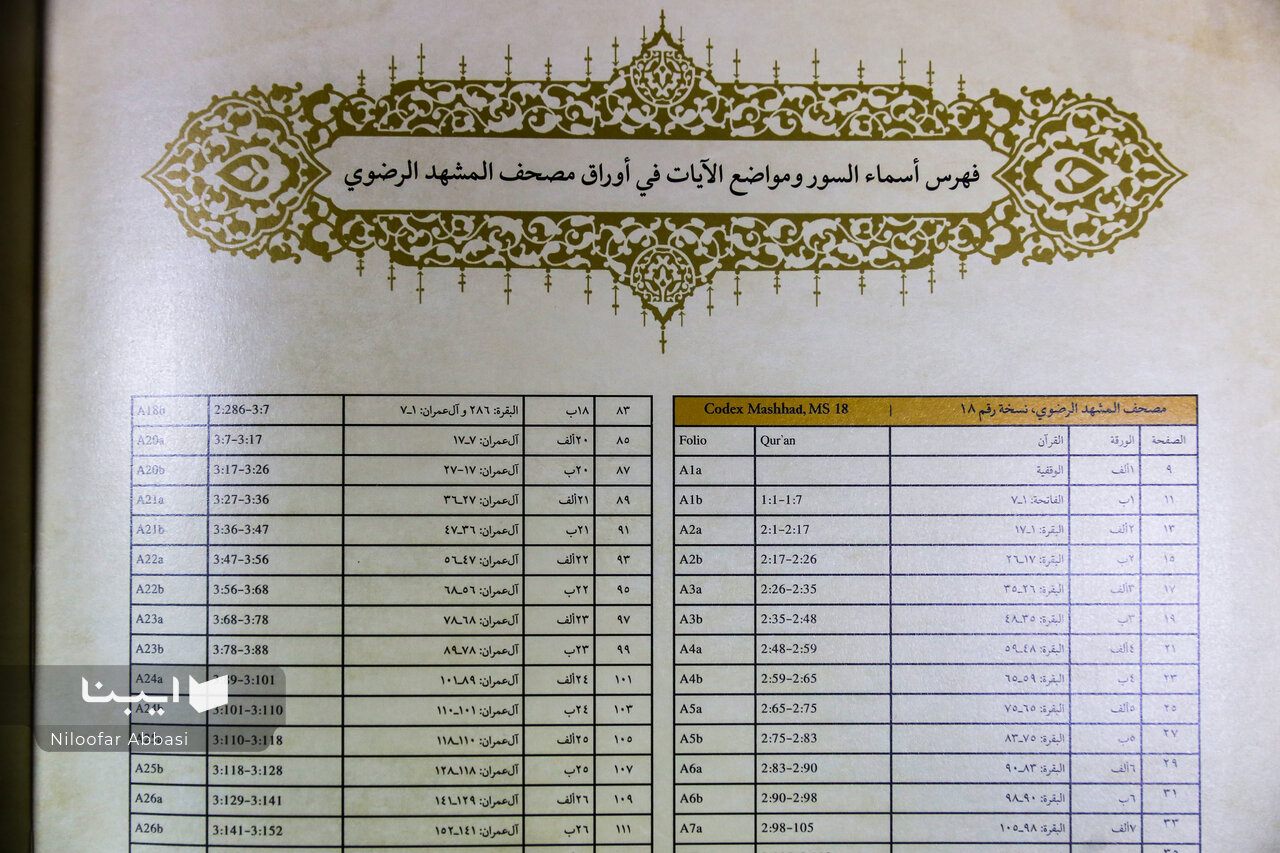 فهرس أسماء السور ومواضع الآيات في أوراق مصحف المشهد الرضوي
مصحف المشهد الرضوي، نسخة رقم ١٨ | Codex Mashhad, MS 18
الصفحة الورقة القرآن Qur`an Folio
٩ ١ألف الوقفية A1a
١١ ١ب الفاتحة: ١ـ٧ 1:1-1:7 A1b
١٣ ٢ألف البقرة: ١ـ١٧ 2:1-2:17 A2a
١٥ ٢ب البقرة: ١٧ـ٢٦ 2:17-2:26 A2b
١٧ ٣ألف البقرة: ٢٦ـ٣٥ 2:26-2:35 A3a
١٩ ٣ب البقرة: ٣٥ـ٤٨ 2:35-2:48 A3b
٢١ ٤ألف البقرة: ٤٨ـ٥٩ 2:48-2:59 A4a
٢٣ ٤ب البقرة: ٥٩ـ٦٥ 2:59-2:65 A4b
٢٥ ٥ألف البقرة: ٦٥ـ٧٥ 2:65-2:75 A5a
٢٧ ٥ب البقرة: ٧٥ـ٨٣ 2:75-2:83 A5b
٢٩ ٦ألف البقرة: ٨٣ـ٩٠ 2:83-2:90 A6a
٣١ ٦ب البقرة: ٩٠ـ٩٨ 2:90-2:98 A6b
٣٣ ٧ألف البقرة: ٩٨ـ١٠٥ 2:98-105 A7a
٨٣ ١٨ب البقرة: ٢٨٦ و آل‌عمران: ١ـ٧ 2:286-3:7 A18b
٨٥ ٢٠ألف آل‌عمران: ٧ـ١٧ 3:7-3:17 A20a
٨٧ ٢٠ب آل‌عمران: ١٧-٢٧ 3:17-3:26 A20b
٨٩ ٢١ألف آل‌عمران: ٢٧ـ٣٦ 3:27-3:36 A21a
٩١ ٢١ب آل‌عمران: ٣٦ـ٤٧ 3:36-3:47 A21b
٩٣ ٢٢ألف آل‌عمران: ٤٧ـ٥٦ 3:47-3:56 A22a
٩٥ ٢٢ب آل‌عمران: ٥٦ـ٦٨ 3:56-3:68 A22b
٩٧ ٢٣ألف آل‌عمران: ٦٨ـ٧٨ 3:68-3:78 A23a
٩٩ ٢٣ب آل‌عمران: ٧٨ـ٨٩ 3:78-3:88 A23b
١٠١ ٢٤ألف آل‌عمران: ٨٩ـ١٠١ A24a
١٠٣ ٢٤ب آل‌عمران: ١٠١ـ١١٠ 3:101-3:110 A24b
١٠٥ ٢٥ألف آل‌عمران: ١١٠ـ١١٨ 3:110-3:118
١٠٧ ٢٥ب آل‌عمران: ١١٨ـ١٢٨ 3:118-3:128 A25b
١٠٩ ٢٦ألف آل‌عمران: ١٢٩ـ١٤١ 3:129-3:141 A26a
١١١ ٢٦ب آل‌عمران: ١٤١ـ١٥٢ 3:141-3:152 A26b
ایبنا
Niloofar Abbasi